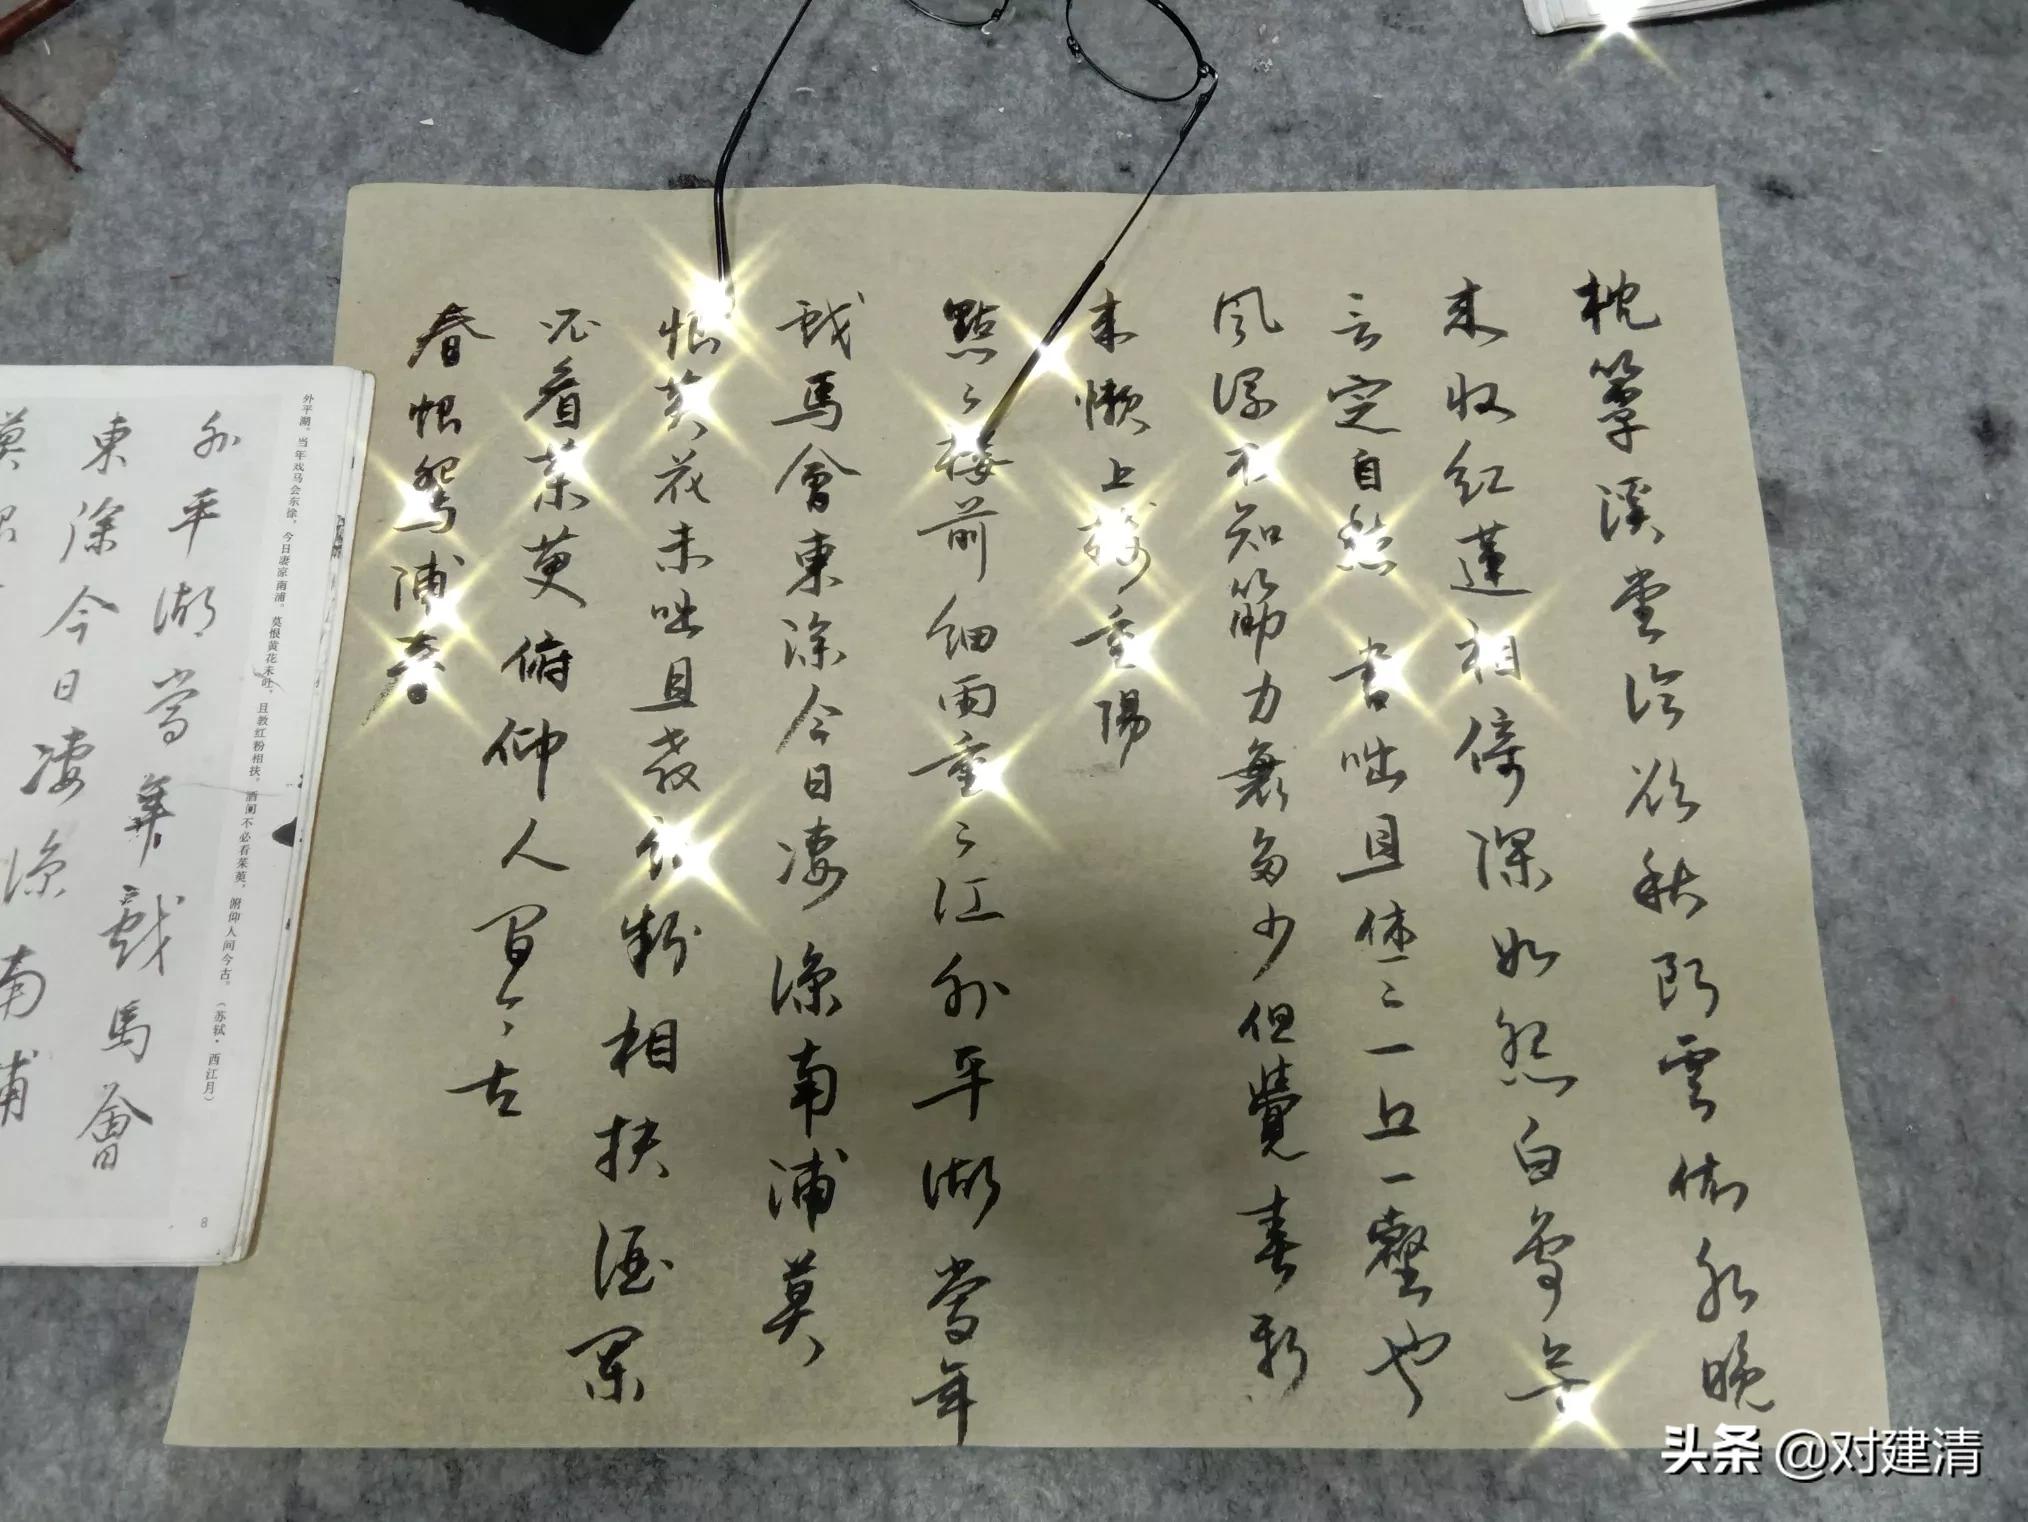 枕簟溪堂冷欲秋断雲依水晚
来收红蓮相倚渾如怨白鳥無
言定自愁 書咄且休〻一丘一壑也
風流不知筋力衰多少但覺春新
来懒上樓重陽
點〻樓前細雨重〻江外平湖當年
戲馬會東徐今日凄涼南浦莫
恨黄花未吐且教红粉相扶酒闌
不必看茱萸俯仰人間今古
外平湖。当年戏马会东徐，今日凄凉南浦。 莫恨黄花未吐，且教红粉相扶。酒阑不必看茱萸，俯仰人间今古。 （苏轼·西江月）
外平湖當年戲馬會
東徐今日凄涼南浦
8
头条 @对建清